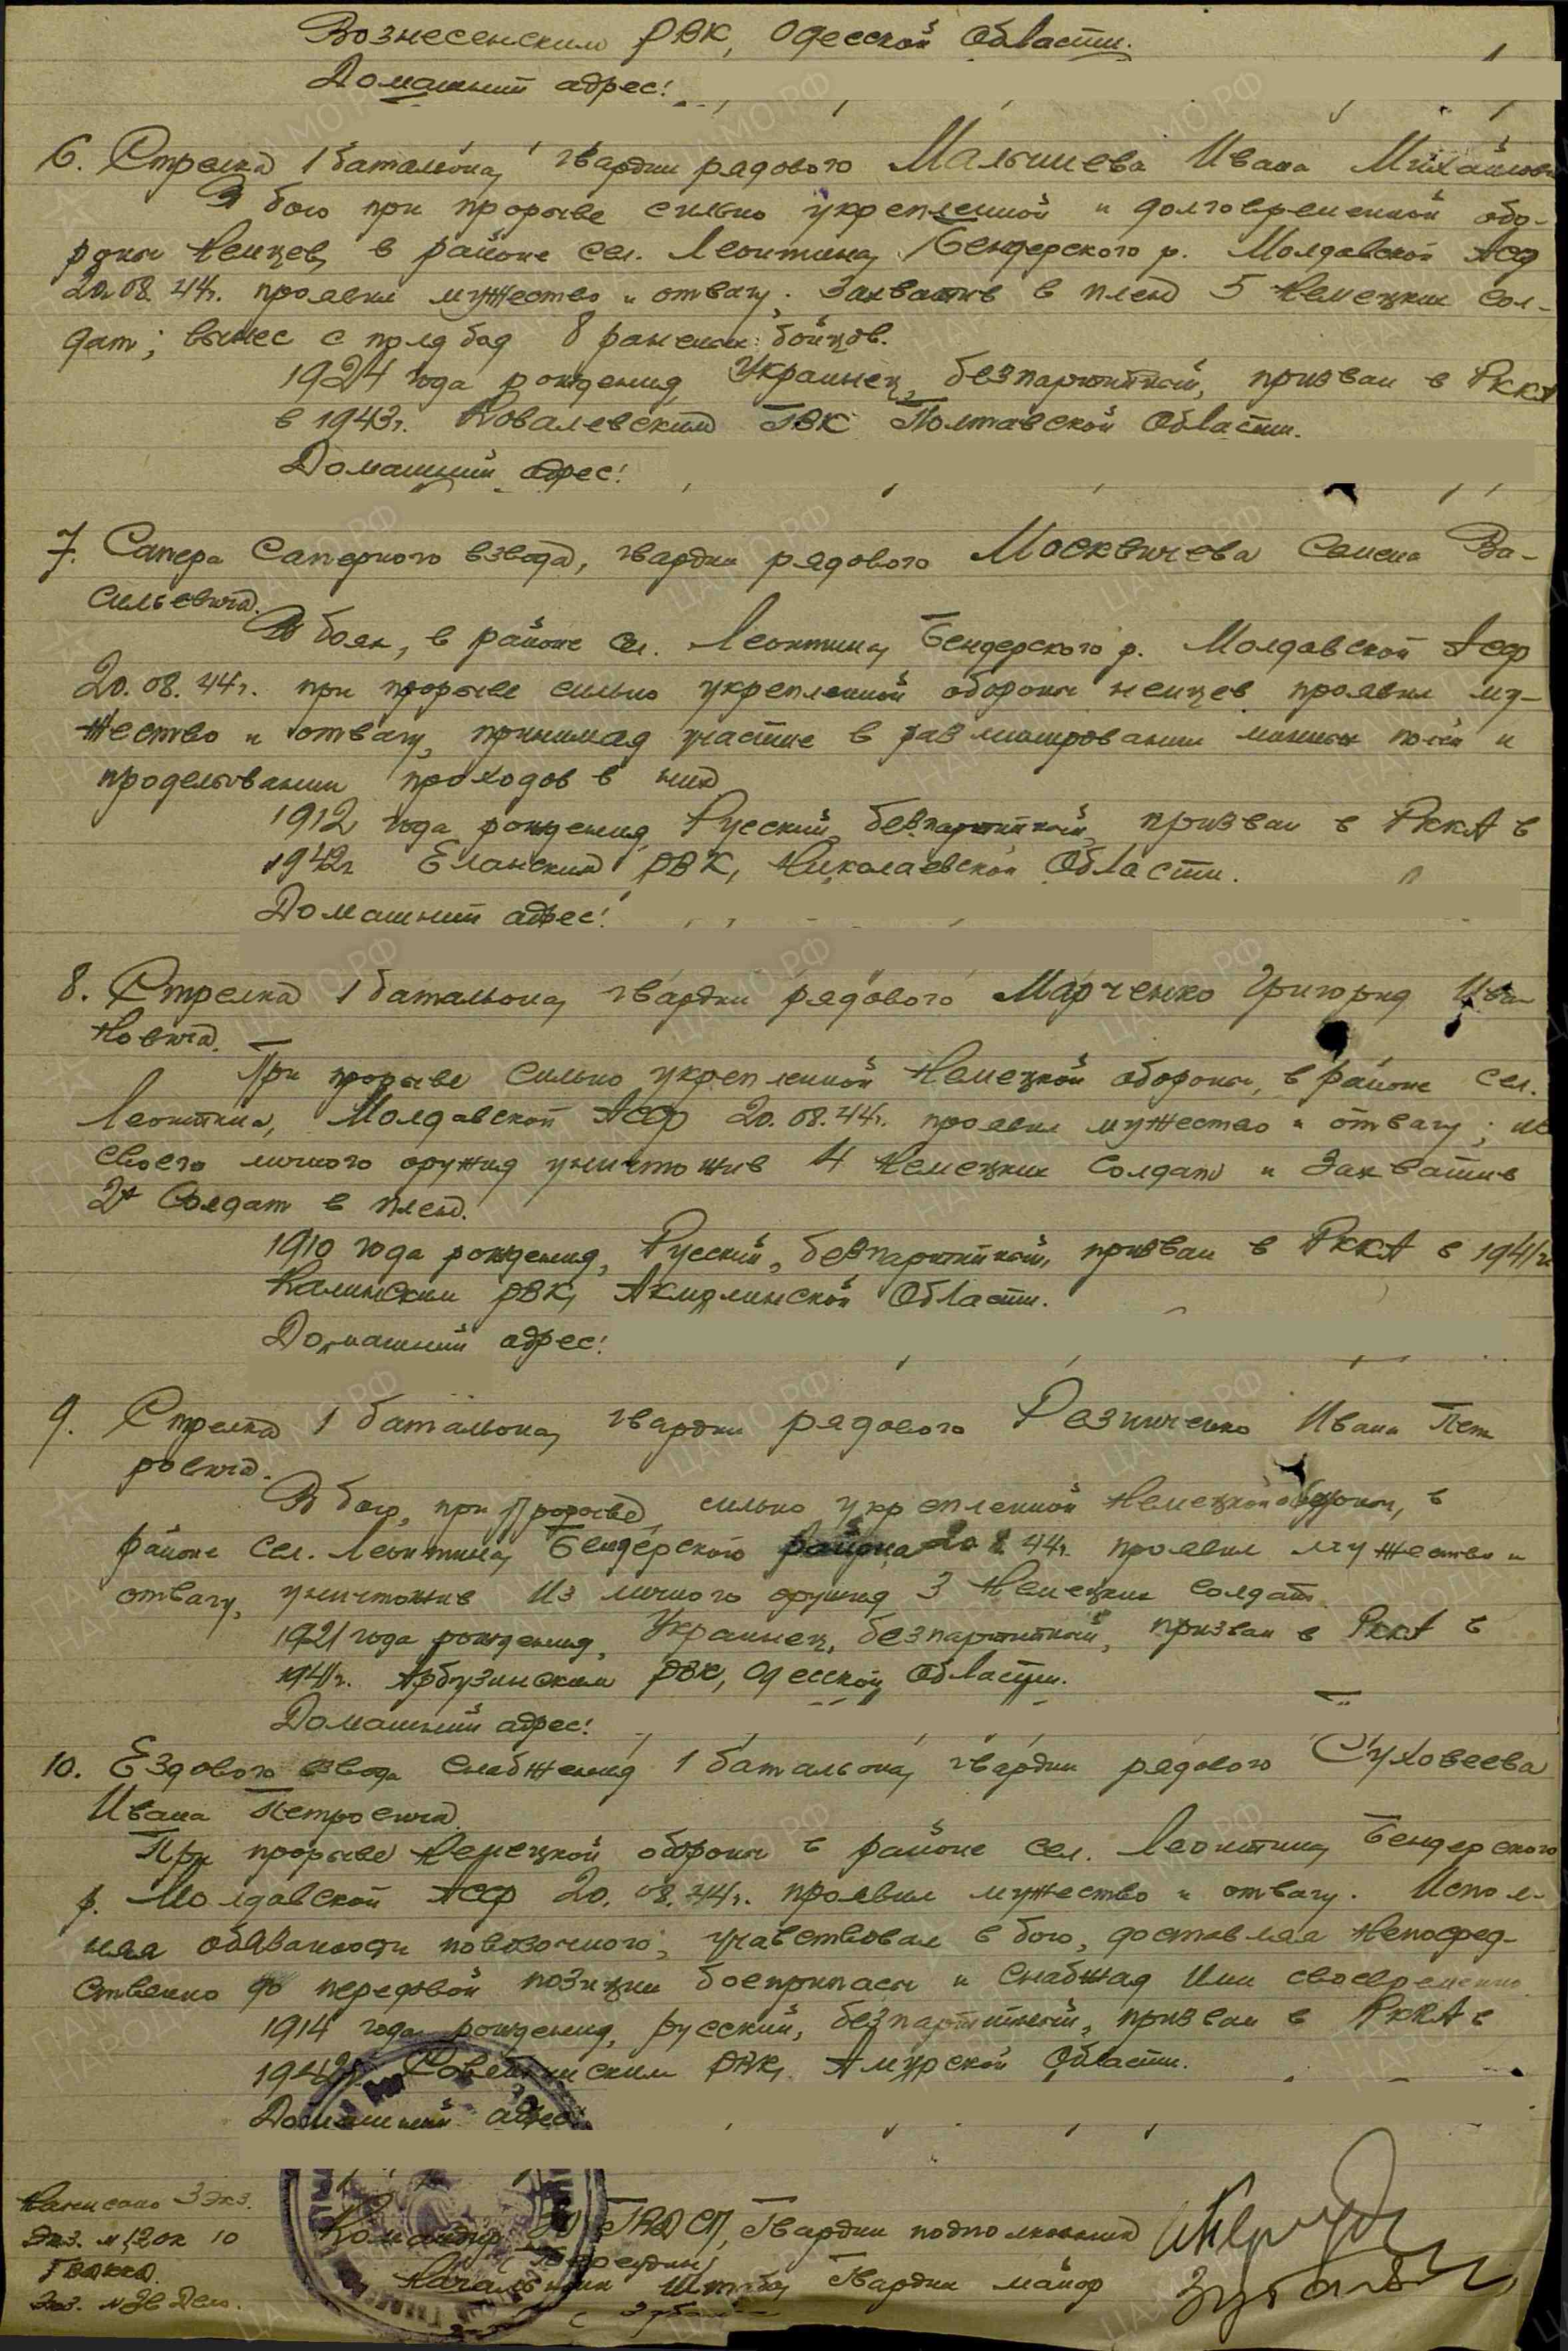 Вознесенским РВК, Одесской Области.
Домашний адрес:
6. Стрелка 1 батальона, гвардии рядового Малышева Ивана Михайлови
В бою при прорыве сильно укрепленной и долговременной обо-
роны немцев, в районе сел. Леонтина, Бендерского р. Молдавской АССР
20.08.44г. проявил мужество и отвагу. Захватив в плен 5 немецких сол-
дат; вынес с поля боя 8 раненых бойцов.
1924 года рождения, Украинец, безпартийный, призван в РККА
в 1943г. Ковалевским ГВК Полтавской Области.
Домашний адрес:
7. Сапера Саперного взвода, гвардии рядового Москвичева Семена Ва-
сильевича.
В боях, в районе сел. Леонтина, Бендерского р. Молдавской АССР
20.08.44г. при прорыве сильно укрепленной обороны немцев проявил му-
жество и отвагу, принимая участие в разминировании минных полей и
проделывании проходов в них
1912 года рождения, Русский, безпартийный, призван в РККА в
1942г Еланским РВК, Николаевской Области.
Домашний адрес:
8. Стрелка 1 батальона, гвардии рядового Марченко Григория Ива-
новича.
При прорыве сильно укрепленной немецкой обороны, в районе сел.
Леонтина, Молдавской АССР 20.08.44г. проявил мужество и отвагу; из
своего личного оружия уничтожив 4 немецких солдат и захватив
2х солдат в плен.
1910 года рождения, Русский, безпартийный, призван в РККА в 1941г
Калининским РВК, Акмолинской Области.
Домашний адрес:
9. Стрелка 1 батальона, гвардии рядового Резниченко Ивана Пет
ровича.
В бою, при прорыве, сильно укрепленной немецкой обороны, в
районе сел. Леонтина, Бендерского района 20.8.44г. проявил мужество и
отвагу, уничтожив из личного оружия 3 немецких солдат.
1921 года рождения, Украинец, безпартийный, призван в РККА в
1941г. Арбузинским РВК, Одесской Области.
Домашний адрес:
10. Ездового взвода снабжения 1 батальона, гвардии рядового Суховеева
Ивана Петровича.
При прорыве немецкой обороны в районе сел. Леонтина, Бендерского
р. Молдавской АССР 20.08.44г. проявил мужество и отвагу. Испол-
няя обязаности повозочного, учавствовал в бою, доставляя непосред-
ственно до передовой позиции боеприпасы и снабжая ими своевременно
1914 года рождения, русский, безпартийный, призван в РККА в
1942г. РВК, Амурской Области.
Домашний адрес:
Написано 3 экз.
Экз. №1,2 ОК 10
Экз. №3 в Дело.
Командир ГВ СП, Гвардии подполковник
Начальник Штаба, Гвардии майор